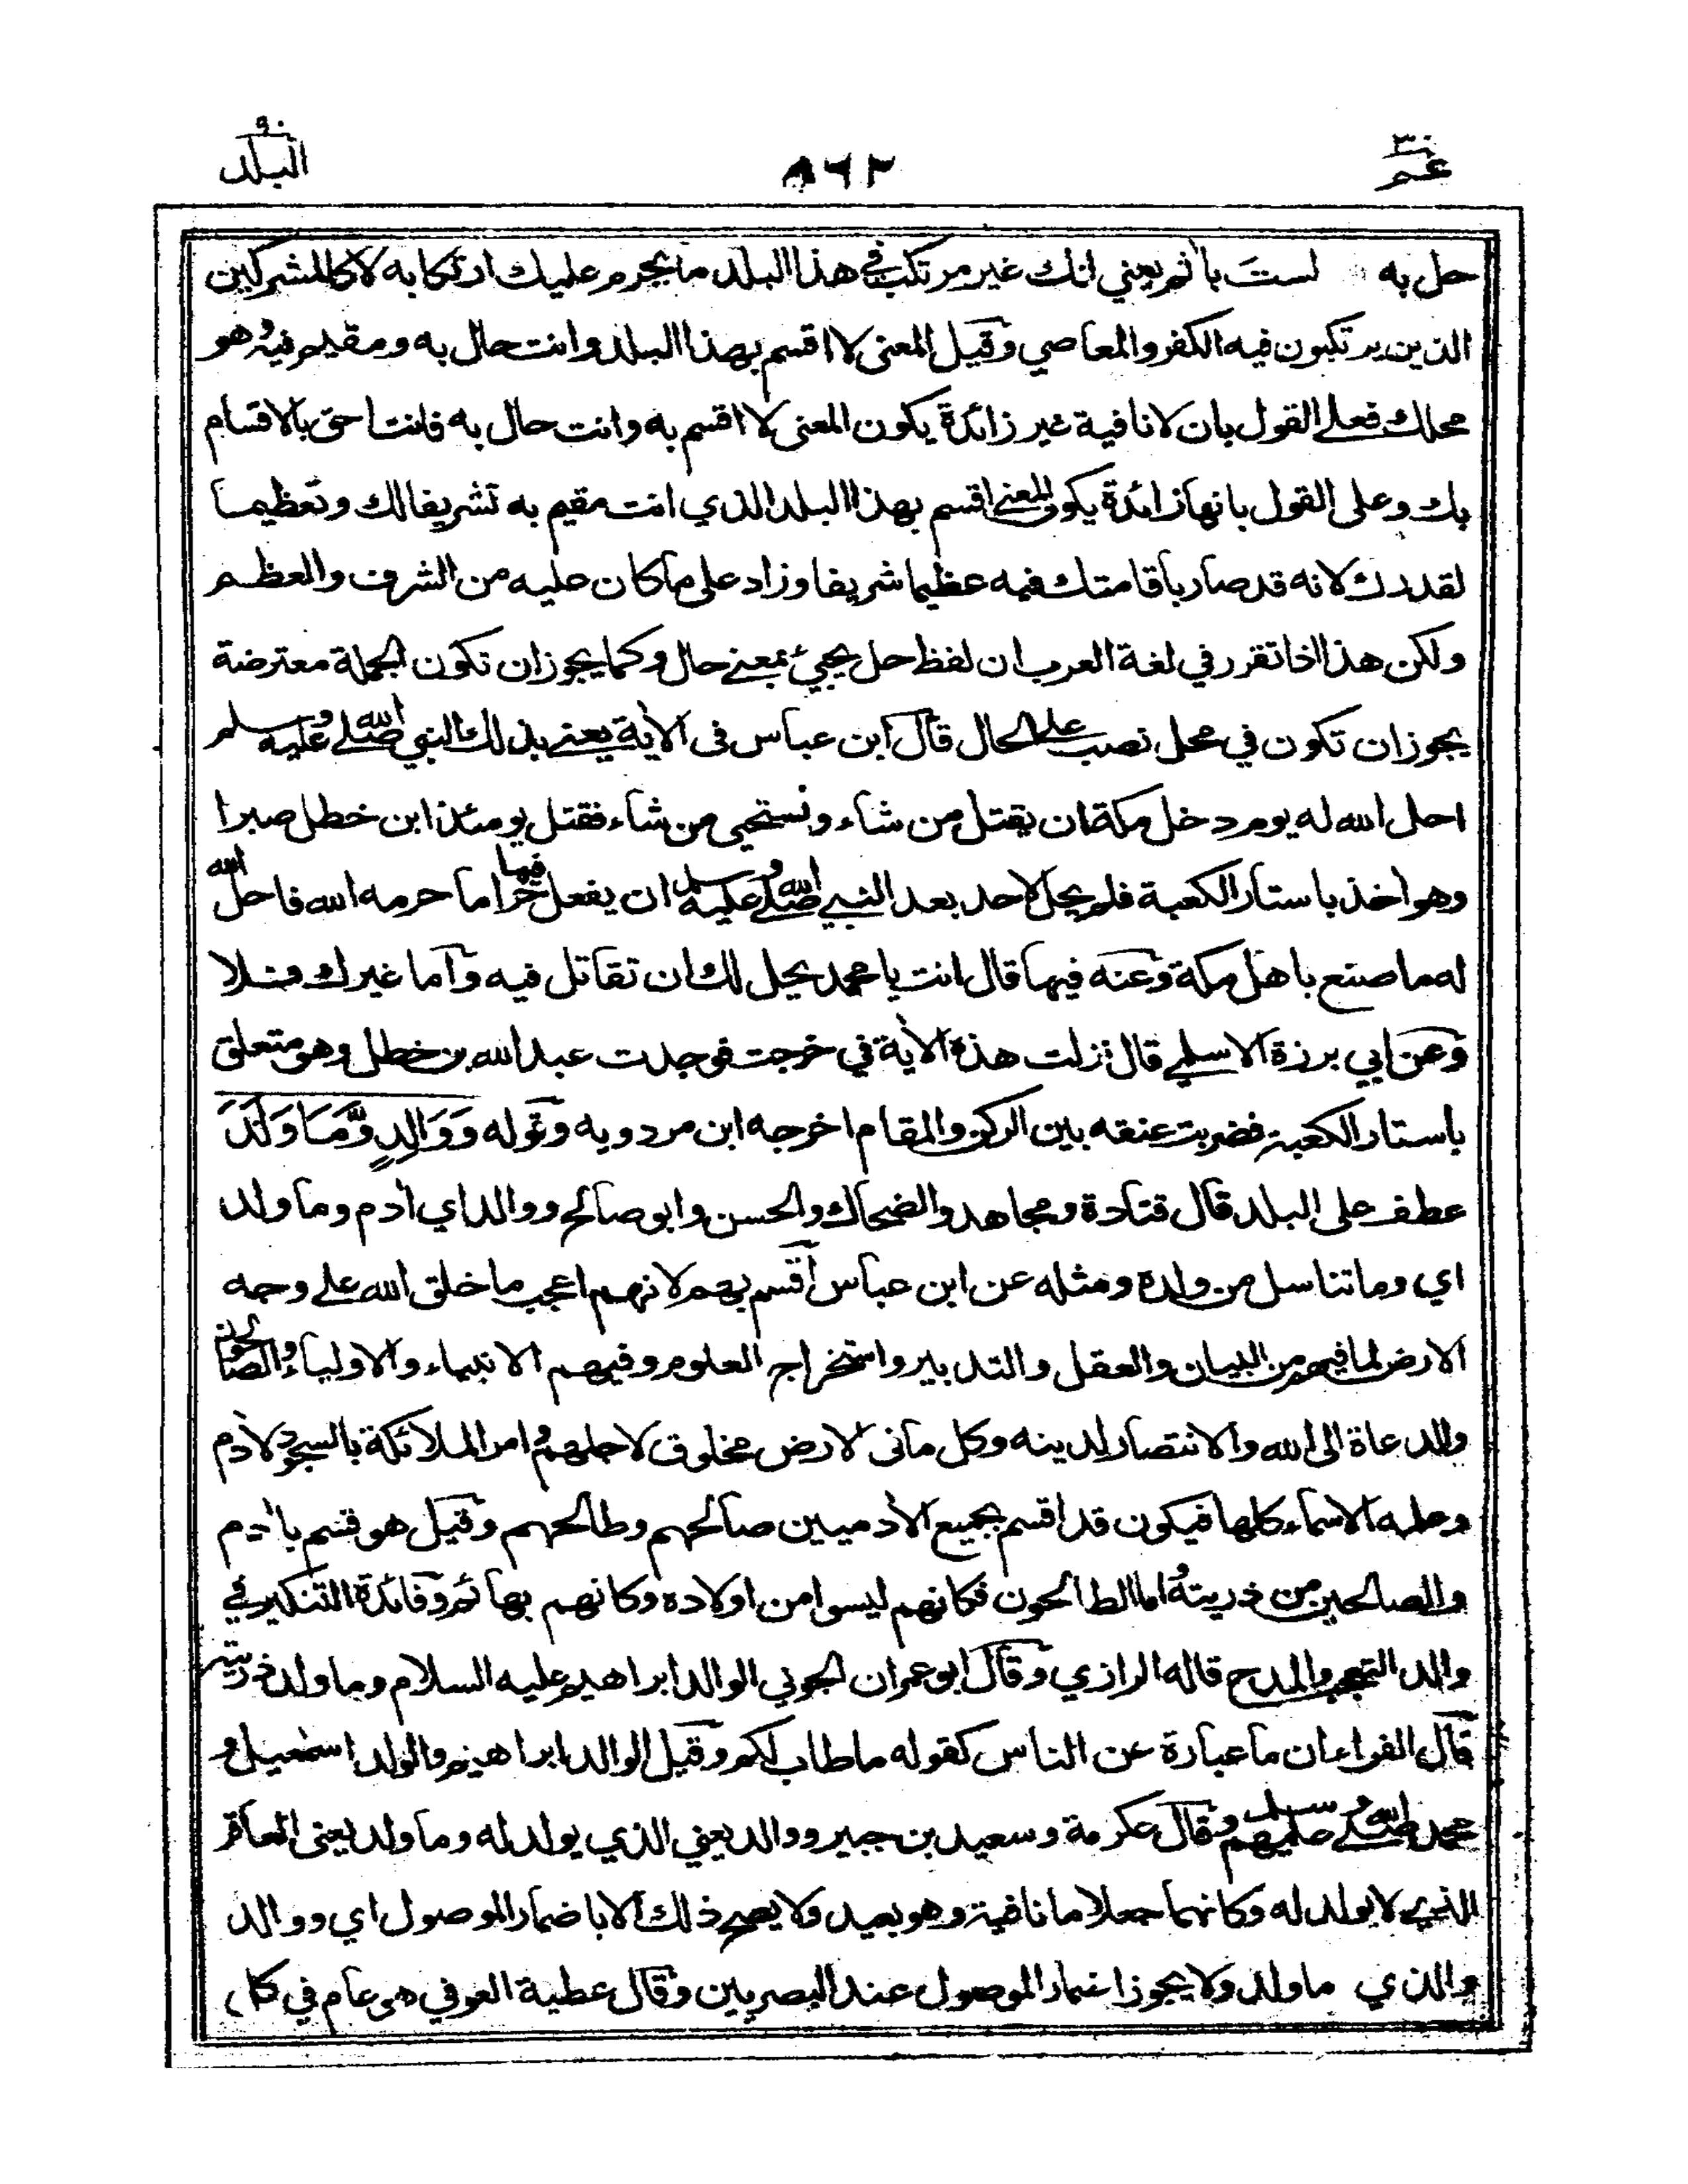 عم ٣٠
٨٦٢
البلد ٩٠
حل به لست باثم يعني انك غير مرتكب في هذا البلد ما يحرم عليك ارتكابه لا كالمشركين
الذين يرتكبون فيه الكفر والمعاصي وقيل المعنى لا اقسم بهذا البلد وانت حال به ومقيم فيه وهو
محلك فعلى القول بان لا نافية غير زائدة يكون المعنى لا اقسم به وانت حال به فانت احق بالاقسام
بك وعلى القول بانها زائدة يكون المعنى اقسم بهذا البلد الذي انت مقيم به تشريفا لك وتعظيما
لقدرك لانه قد صار باقامتك فيه عظيما شريفا وزاد على ما كان عليه من الشرف والعظم
ولكن هذا اذا تقرر في لغة العرب ان لفظ حل يجيئ بمعنى حال وكما يجوز ان تكون الجملة معترضة
يجوز ان تكون في محل نصب على الحال قال ابن عباس في الاية يعني بذلك النبي صلى الله عليه وسلم
احل الله له يوم دخل مكة ان يقتل من شاء ونستحيي من شاء فقتل يومئذ ابن خطل صبرا
وهو اخذ باستار الكعبة فلم يحل لاحد بعد النبي صلى الله عليه وسلم ان يفعل فيها حراما حرمه الله فاحل الله
له ما صنع باهل مكة وعنه فيها قال انت يا محمد يحل لك ان تقاتل فيه واما غيرك فلا
وعن ابي برزة الاسلمي قال نزلت هذه الاية في خرجت فوجدت عبد الله بن خطل وهو متعلق
باستار الكعبة فضربت عنقه بين الركن والمقام اخرجه ابن مردويه وقوله وَوَالِدٍ وَّمَا وَلَدَ
عطف على البلد قال قتادة ومجاهد والضحاك والحسن وابو صالح ووالد اي ادم وما ولد
اي وما تناسل من ولده ومثله عن ابن عباس اقسم بهم لانهم اعجب ما خلق الله على وجه
الارض لما فيهم من البيان والعقل والتدبير واستخراج العلوم وفيهم الانبياء والاولياء والصالحون
والدعاة الى الله والانتصار لدينه وكل ما في الارض مخلوق لاجلهم وامر الملائكة بالسجود لادم
وعلمه الاسماء كلها فيكون قد اقسم بجميع الادميين صالحهم وطالحهم وقيل هو قسم بادم
والصالحين من ذريته واما الطالحون فكانهم ليسوا من اولاده وكانهم بهائم وفائدة التنكير في
والد التعجب والمدح قاله الرازي وقال ابو عمران الجوني الوالد ابراهيم عليه السلام وما ولد ذريته
قال الفراء ان ما عبارة عن الناس كقوله ما طاب لكم وقيل الوالد ابراهيم والولد اسمعيل و
محمد صلى الله عليهم وسلم وقال عكرمة وسعيد بن جبير ووالد يعني الذي يولد له وما ولد يعني العاقر
الذي لا يولد له وكانهما جعلا ما نافية وهو بعيد ولا يصح ذلك الا باضمار الموصول اي ووالد
والذي ما ولد ولا يجوز اضمار الموصول عند البصريين وقال عطية العوفي هو عام في كل